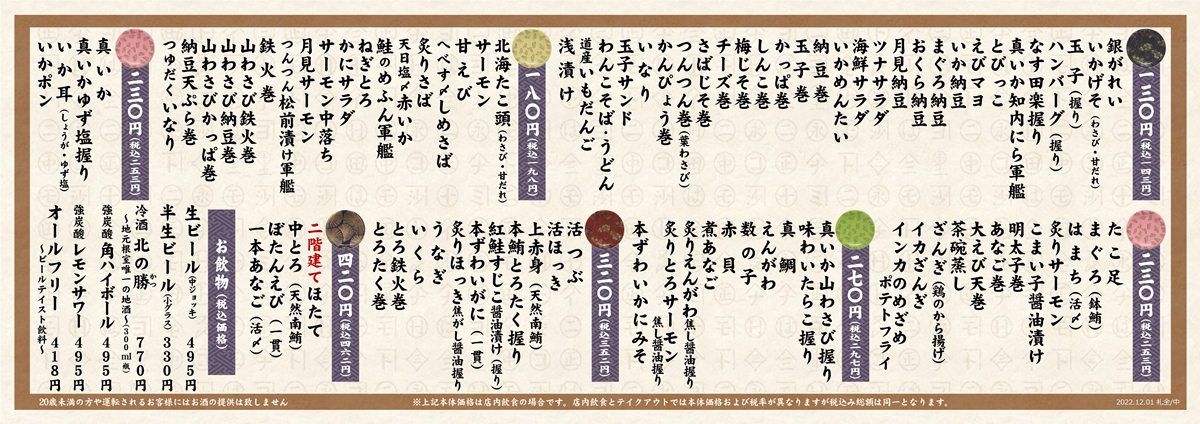 一三〇円（税込一四三円）
銀がれい
いかげそ（わさび・甘だれ）
玉子（握り）
ハンバーグ（握り）
なす田楽握り
真いか知内にら軍艦
とびっこ
えびマヨ
いか納豆
まぐろ納豆
おくら納豆
月見納豆
ツナサラダ
海鮮サラダ
いかめんたい
納豆巻
玉子巻
かっぱ巻
しんこ巻
梅じそ巻
チーズ巻
さばじそ巻
つんつん巻（葉わさび）
かんぴょう巻
いなり
玉子サンド
わんこそば・うどん
道産いもだんご
浅漬け
一八〇円（税込一九八円）
北海たこ頭（わさび・甘だれ）
サーモン
甘えび
へべす〆しめさば
炙りさば
天日塩〆赤いか
鮭のめふん軍艦
ねぎとろ
かにサラダ
サーモン中落ち
月見サーモン
つんつん松前漬け軍艦
鉄火巻
山わさび鉄火巻
山わさび納豆巻
山わさびかっぱ巻
納豆天ぷら巻
つゆだくいなり
二三〇円（税込二五三円）
真いか
真いかゆず塩握り
いか耳（しょうが・ゆず塩）
いかポン
二三〇円（税込二五三円）
たこ足
まぐろ（鉢鮪）
はまち（活〆）
炙りサーモン
こまい子醤油漬け
明太子巻
あなご巻
大えび天巻
茶碗蒸し
ざんぎ（鶏のから揚げ）
イカざんぎ
インカのめざめ
ポテトフライ
二七〇円（税込二九七円）
真いか山わさび握り
味わいたらこ握り
真鯛
えんがわ
数の子
赤貝
煮あなご
炙りえんがわ焦し醤油握り
炙りとろサーモン
焦し醤油握り
本ずわいかにみそ
三二〇円（税込三五二円）
活つぶ
活ほっき
上赤身（天然南鮪）
本鮪とろたく握り
紅鮭すじこ醤油漬け（握り）
本ずわいがに（一貫）
炙りほっき焦がし醤油握り
うなぎ
いくら
とろ鉄火巻
とろたく巻
四二〇円（税込四六二円）
二階建てほたて
中とろ（天然南鮪）
ぼたんえび（一貫）
一本あなご（活〆）
お飲物（税込価格）
生ビール（中ジョッキ） 495円
半生ビール（小グラス） 330円
冷酒 北の勝 770円
かつ
～地元根室唯一の地酒～300ml瓶
強炭酸 角ハイボール 495円
強炭酸 レモンサワー 495円
オールフリー 418円
～ビールテイスト飲料～
20歳未満の方や運転されるお客様にはお酒の提供は致しません
※上記本体価格は店内飲食の場合です。店内飲食とテイクアウトでは本体価格および税率が異なりますが税込み総額は同一となります。
2022.12.01 札全/中